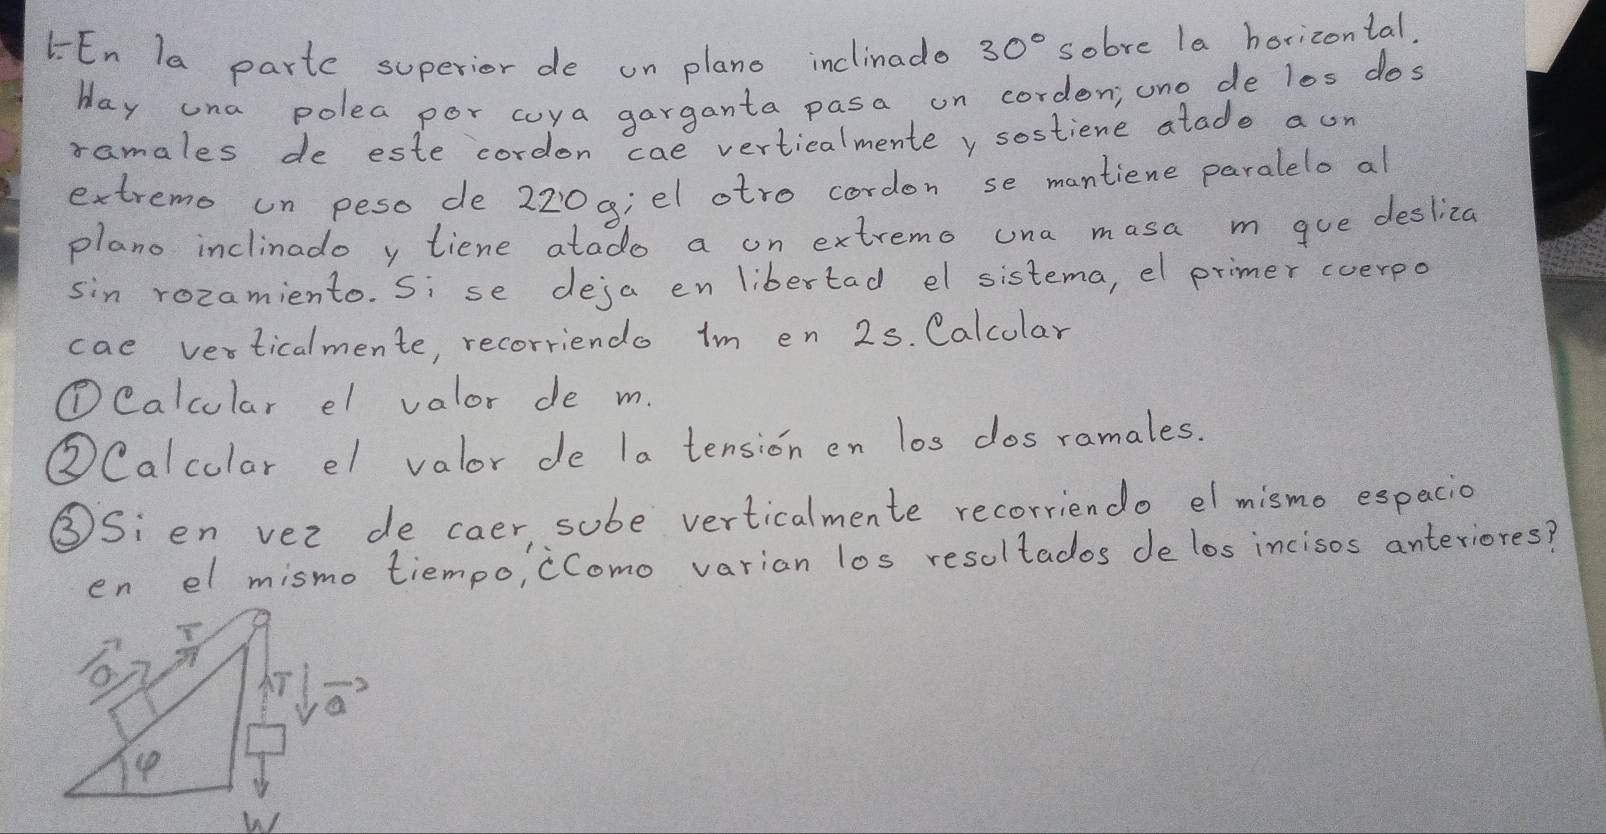 1.-En la parte superior de un plano inclinado 30° sobre la horizontal.
Hay una polea por cuya garganta pasa un cordon; uno de los dos
ramales de este cordon cae verticalmente y sostiene atado a un
extremo un peso de 220g; el otro cordon se mantiene paralelo al
plano inclinado y tiene atado a un extremo una masa m que desliza
sin rozamiento. Si se deja en libertad el sistema, el primer cuerpo
cae verticalmente, recorriendo 1m en 2s. Calcular
① Calcular el valor de m.
② Calcular el valor de la tensión en los dos ramales.
③ Si en vez de caer, sube verticalmente recorriendo el mismo espacio
en el mismo tiempo, ¿Como varian los resultados de los incisos anteriores?
T
a
T a
φ
W